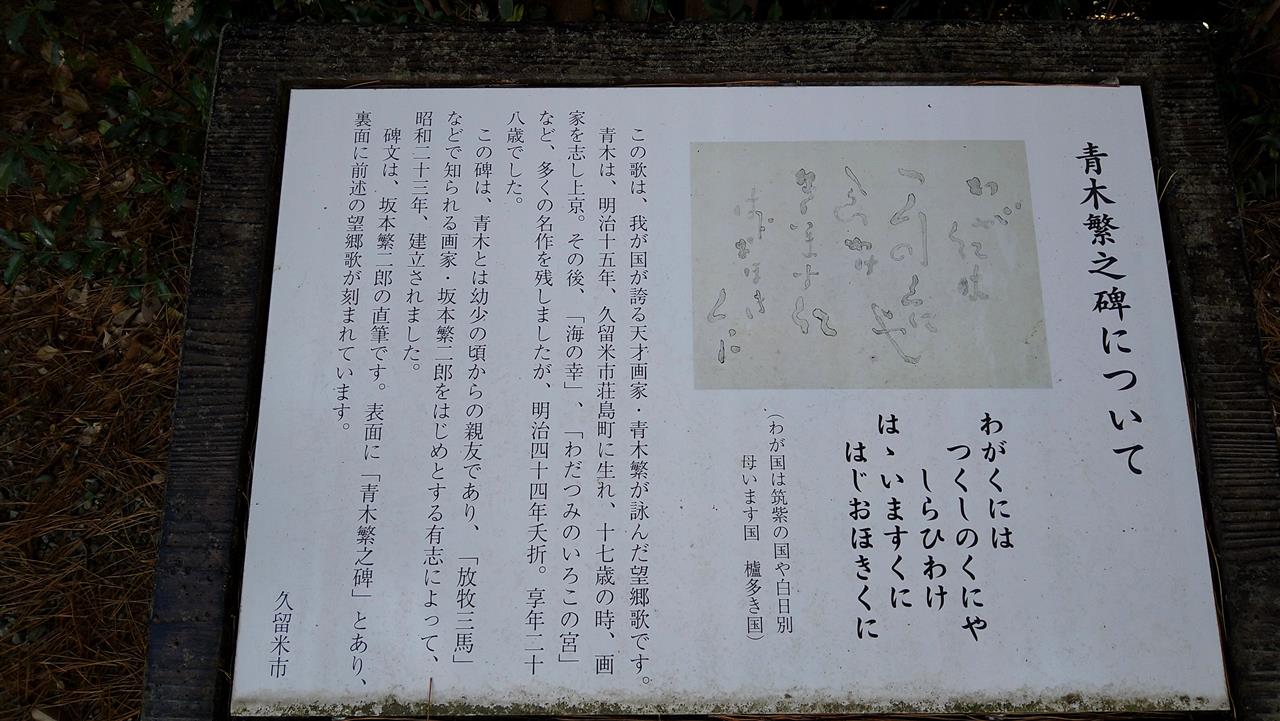 青木繁之碑について
わがくには
つくしのくにや
しらひわけ
はゝいますくに
はじおほきくに
(わが国は筑紫の国や白日別
母います国　櫨多き国)
この歌は、我が国が誇る天才画家・青木繁が詠んだ望郷歌です。
青木は、明治十五年、久留米市荘島町に生れ、十七歳の時、画
家を志し上京。その後、「海の幸」、「わだつみのいろこの宮」
など、多くの名作を残しましたが、明治四十四年夭折。享年二十
八歳でした。
この碑は、青木とは幼少の頃からの親友であり、「放牧三馬」
などで知られる画家・坂本繁二郎をはじめとする有志によって、
昭和二十三年、建立されました。
碑文は、坂本繁二郎の直筆です。表面に「青木繁之碑」とあり、
裏面に前述の望郷歌が刻まれています。
久留米市